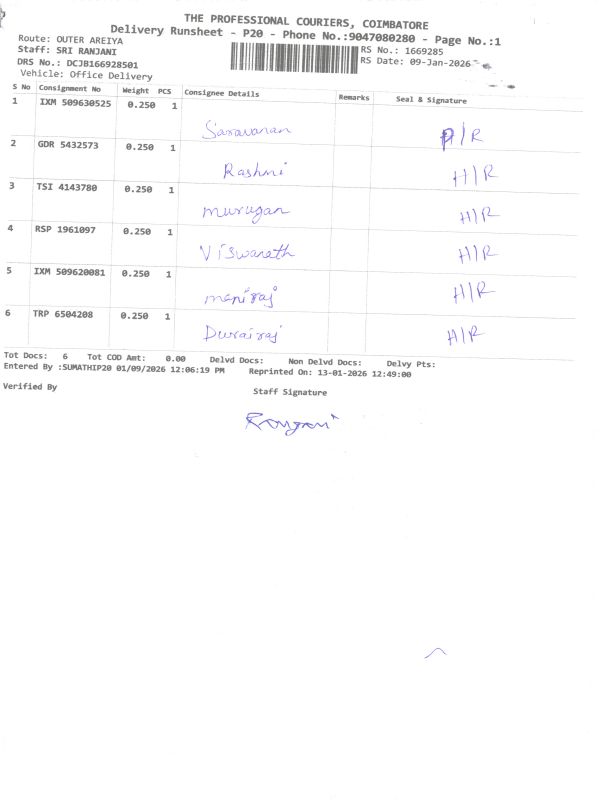 THE PROFESSIONAL COURIERS, COIMBATORE
Delivery Runsheet - P20 - Phone No.:9047080280 - Page No.:1
Route: OUTER AREIYA
Staff: SRI RANJANI RS No.: 1669285
DRS No.: DCJB166928501 RS Date: 09-Jan-2026
Vehicle: Office Delivery
S No Consignment No Weight PCS Consignee Details Remarks Seal & Signature
1 IXM 509630525 0.250 1
Saravanan P/R
2 GDR 5432573 0.250 1
Rashmi H/R
3 TSI 4143780 0.250 1
murugan H/R
4 RSP 1961097 0.250 1
Viswanath H/R
5 IXM 509620081 0.250 1
maniraj H/R
6 TRP 6504208 0.250 1
Durairaj H/R
Tot Docs: 6 Tot COD Amt: 0.00 Delvd Docs: Non Delvd Docs: Delvy Pts:
Entered By :SUMATHIP20 01/09/2026 12:06:19 PM Reprinted On: 13-01-2026 12:49:00
Verified By Staff Signature